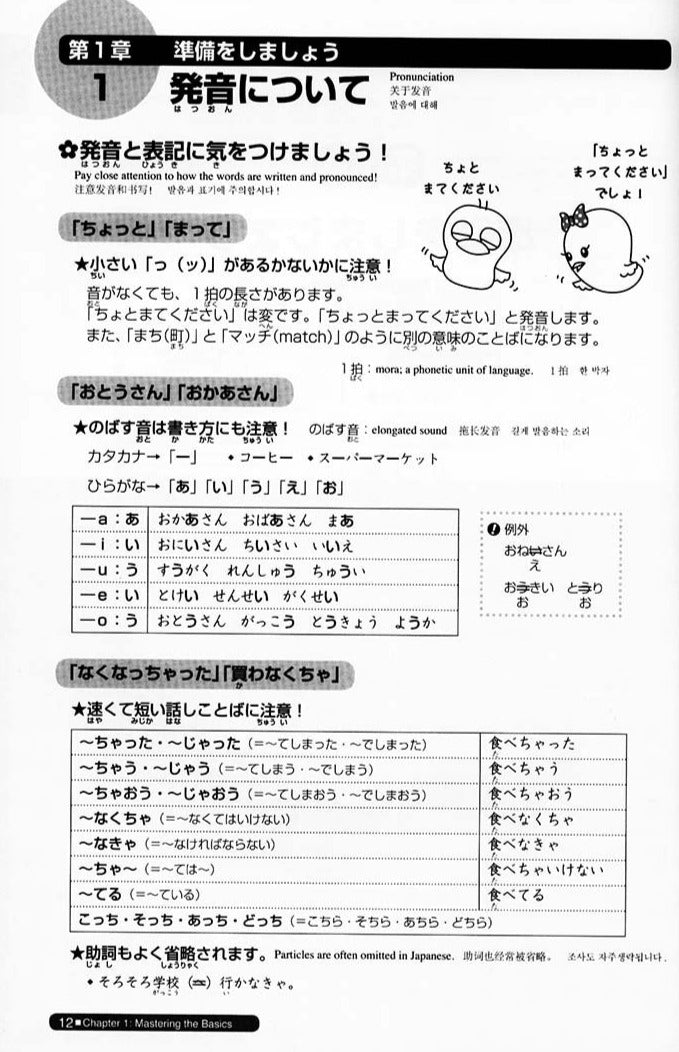 第1章 準備をしましょう
1 発音について
はつおん
Pronunciation
关于发音
발음에 대해
✿発音と表記に気をつけましょう！
はつおん ひょうき き
Pay close attention to how the words are written and pronounced!
注意发音和书写! 발음과 표기에 주의합시다!
ちょと
まてください
「ちょっと
まってください」
でしょ！
「ちょっと」「まって」
★小さい「っ（ッ）」があるかないかに注意！
ちい ちゅうい
音がなくても、1拍の長さがあります。
おと ぱく なが
「ちょとまてください」は変です。「ちょっとまってください」と発音します。
へん はつおん
また、「まち(町)」と「マッチ(match)」のように別の意味のことばになります。
まち べつ いみ
1拍：mora; a phonetic unit of language. 1拍 한 박자
ぱく
「おとうさん」「おかあさん」
★のばす音は書き方にも注意！ のばす音：elongated sound 拖长发音 길게 발음하는 소리
おと か かた ちゅうい おと
カタカナ→「ー」 ◆コーヒー ◆スーパーマーケット
ひらがな→「あ」「い」「う」「え」「お」
―a：あ おかあさん おばあさん まあ
―i：い おにいさん ちいさい いいえ
―u：う すうがく れんしゅう ちゅうい
―e：い とけい せんせい がくせい
―o：う おとうさん がっこう とうきょう ようか
! 例外
おねいさん
え
おうきい とうり
お お
「なくなっちゃった」「買わなくちゃ」
か
★速くて短い話しことばに注意！
はや みじか はな ちゅうい
～ちゃった・～じゃった（=～てしまった・～でしまった） 食べちゃった
た
～ちゃう・～じゃう（=～てしまう・～でしまう） 食べちゃう
た
～ちゃおう・～じゃおう（=～てしまおう・～でしまおう） 食べちゃおう
た
～なくちゃ（=～なくてはいけない） 食べなくちゃ
た
～なきゃ（=～なければならない） 食べなきゃ
た
～ちゃ～（=～ては～） 食べちゃいけない
た
～てる（=～ている） 食べてる
た
こっち・そっち・あっち・どっち（=こちら・そちら・あちら・どちら）
★助詞もよく省略されます。Particles are often omitted in Japanese. 助词也经常被省略。 조사도 자주 생략됩니다.
じょし しょうりゃく
◆そろそろ学校（へ）行かなきゃ。
がっこう い
12■Chapter 1: Mastering the Basics